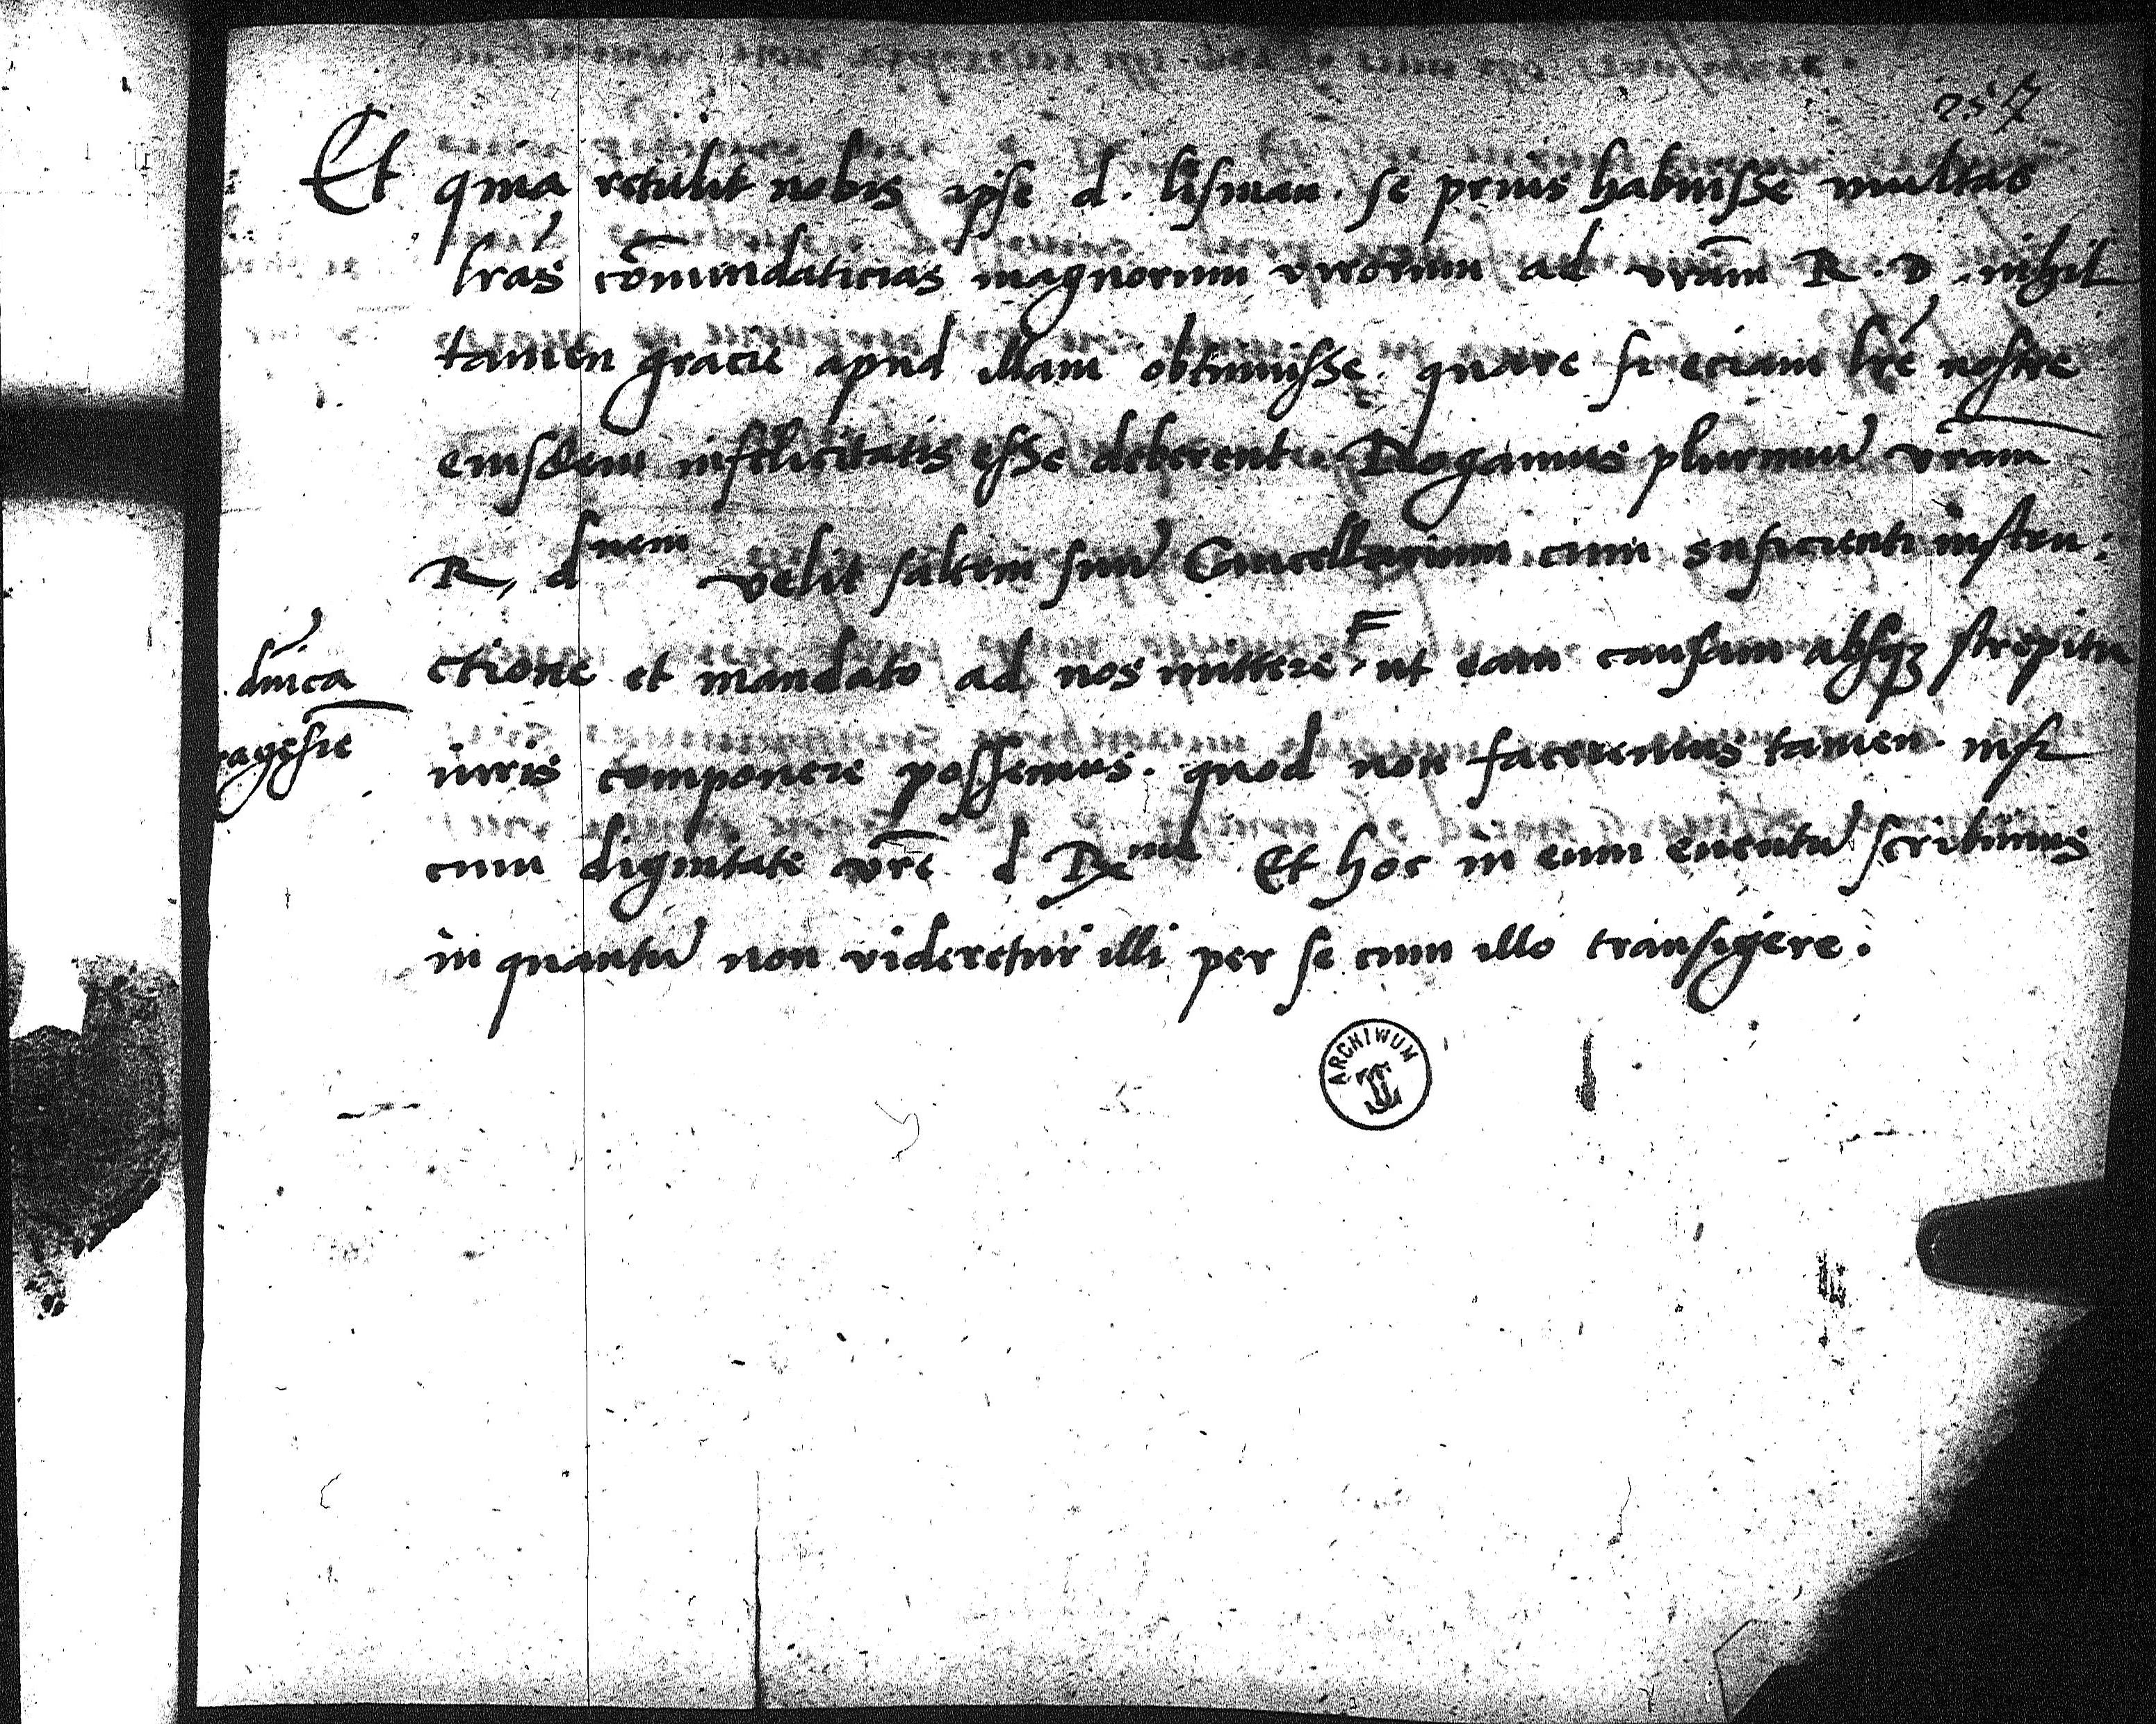 257
Et quia retulit nobis ipse d. lisman. se prius habuisse multas
lras cōmendaticias magnorum virorum ad vrām R. D. nihil
tamen gracie apud illam obtinuisse. quare si eciam lre nostre
eiusdem infelicitatis esse deberent. Rogamus plurimu vram
R, dnem velit saltem suu Cancellarium cum suficienti instru:
ctione et mandato ad nos mittere F ut eam causam absqꝫ strepitu
iuris componere possemus. quod non faceremus tamen. nisi
cum dignitate vrē d Rme Et hoc in eum euentu scribimus
in quantu non videretur illi per se cum illo transigere.
dnica
ragesie
ARCHIWUM